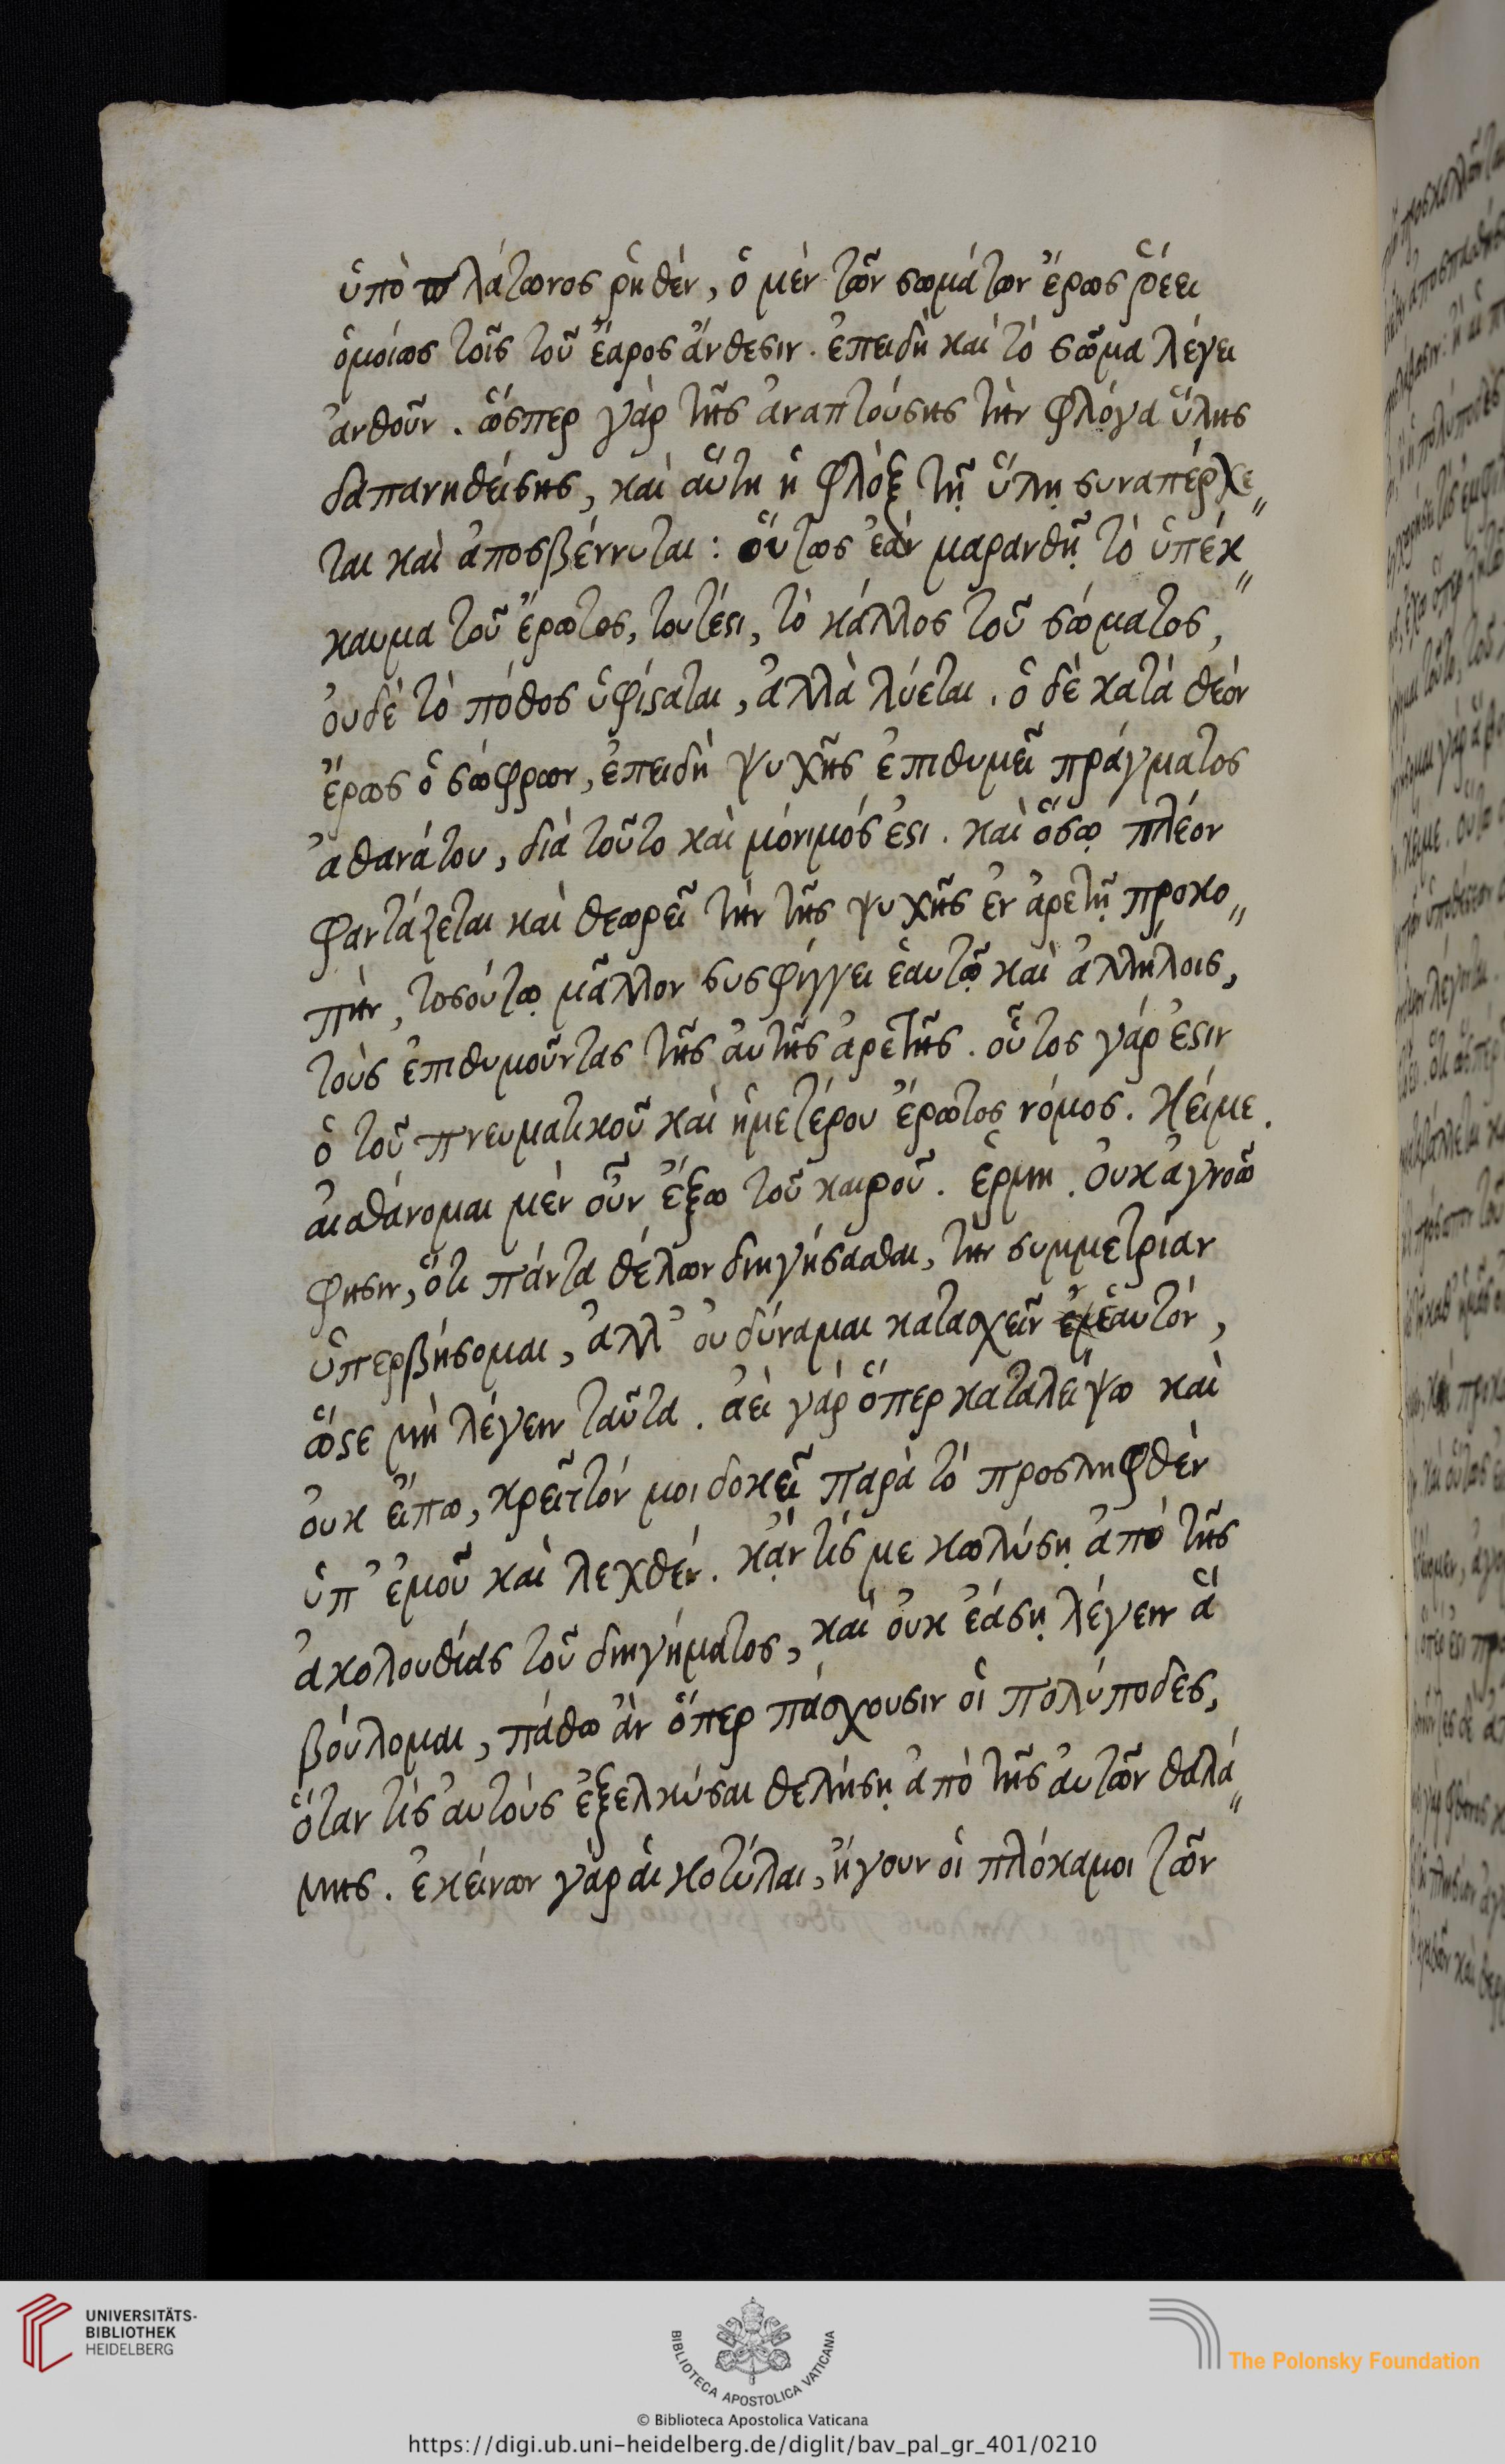 ὑπὸ πλάτωνος ῥηθὲν, ὁ μὲν τῶν σωμάτων ἔρως ῥέει
ὁμοίως τοῖς τοῦ ἔαρος ἄνθεσιν. ἐπειδὴ καὶ τὸ σῶμα λέγει
ἀνθοῦν. ὥσπερ γὰρ τῆς ἀναπτούσης τὴν φλόγα ὕλης
δαπανηθείσης, καὶ αὕτη ἡ φλὸξ τῇ ὕλῃ συναπέρχε〃
ται καὶ ἀποσβέννυται: οὕτως ἐὰν μαρανθῇ τὸ ὑπέκ〃
καυμα τοῦ ἔρωτος, τουτέστι, τὸ κάλλος τοῦ σώματος,
οὐδὲ τὸ πόθος ὑφίσταται, ἀλλὰ λύεται. ὁ δὲ κατὰ θεὸν
ἔρως ὁ σώφρων, ἐπειδὴ ψυχῆς ἐπιθυμεῖ πράγματος
ἀθανάτου, διὰ τοῦτο καὶ μόνιμός ἐστι. καὶ ὅσῳ πλέον
φαντάζεται καὶ θεωρεῖ τὴν τῆς ψυχῆς ἐν ἀρετῇ προκο〃
πὴν, τοσούτῳ μᾶλλον συσφίγγει ἑαυτῷ καὶ ἀλλήλοις,
τοὺς ἐπιθυμοῦντας τῆς αὐτῆς ἀρετῆς. οὗτος γάρ ἐστιν
ὁ τοῦ πνευματικοῦ καὶ ἡμετέρου ἔρωτος νόμος. Κείμε.
αἰσθάνομαι μὲν οὖν ἔξω τοῦ καιροῦ. ἑρμη. Οὐκ ἀγνοῶ
φησιν, ὅτι πάντα θέλων διηγήσασθαι, τὴν συμμετρίαν
ὑπερβήσομαι, ἀλλ' οὐ δύναμαι κατασχεῖν ἑαυτόν,
ὥστε μὴ λέγειν ταῦτα. ἀεὶ γὰρ ὅπερ καταλείψω καὶ
οὐκ εἴπω, κρεῖττόν μοι δοκεῖ παρὰ τὸ προσληφθὲν
ὑπ' ἐμοῦ καὶ λεχθέν. κἄν τίς με κωλύσῃ ἀπὸ τῆς
ἀκολουθίας τοῦ διηγήματος, καὶ οὐκ ἐάσῃ λέγειν ἃ
βούλομαι, πάθω ἂν ὅπερ πάσχουσιν οἱ πολύποδες,
ὅταν τὶς αὐτοὺς ἐξελκύσαι θελήσῃ ἀπὸ τῆς αὐτῶν θαλά〃
μης. ἐκείνων γὰρ αἱ κοτύλαι, ἤγουν οἱ πλόκαμοι τῶν
UNIVERSITÄTS-
BIBLIOTHEK
HEIDELBERG
BIBLIOTECA APOSTOLICA VATICANA
The Polonsky Foundation
© Biblioteca Apostolica Vaticana
https://digi.ub.uni-heidelberg.de/diglit/bav_pal_gr_401/0210